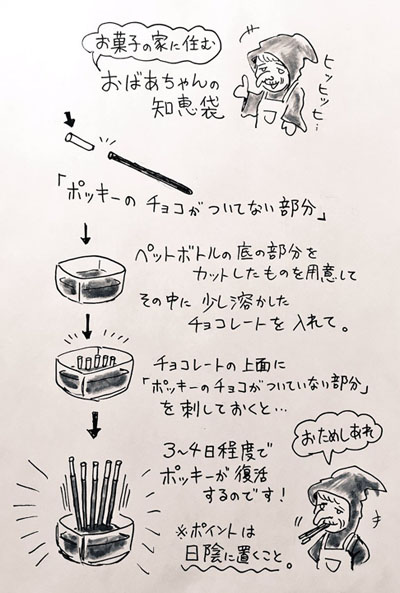 お菓子の家に住む
おばあちゃんの
知恵袋
ヒッヒッヒ…
「ポッキーの チョコが ついてない部分」
ペットボトルの底の部分を
カットしたものを用意して
その中に 少し溶かした
チョコレートを入れて。
チョコレートの上面に
「ポッキーのチョコがついていない部分」
を刺しておくと…
3〜4日程度で
ポッキーが復活
するのです!
※ポイントは
日陰に置くこと。
おためしあれ